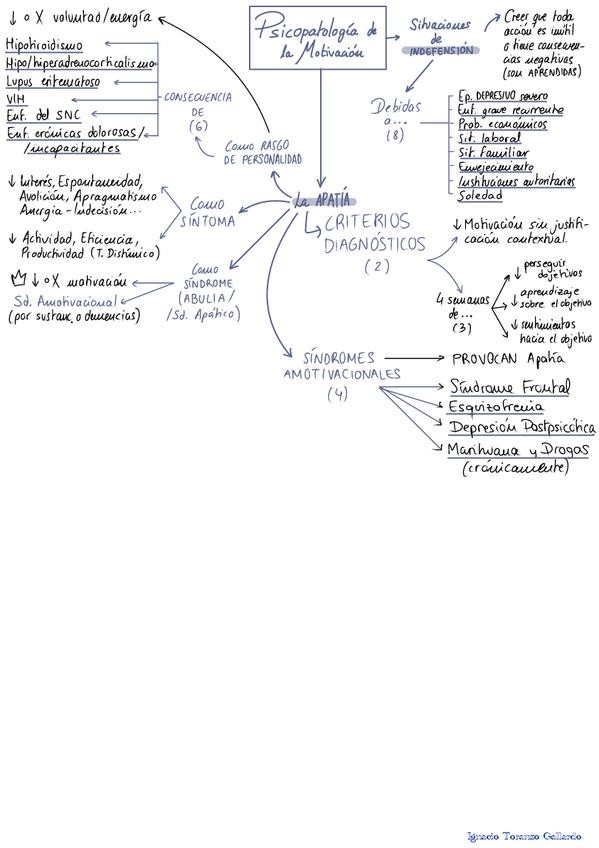 Psicopatología de
la Motivación
Situaciones
de
INDEFENSIÓN
Creer que toda
acción es inútil
o tiene consecuen-
cias negativas
(son APRENDIDAS)
Debidas
a...
(8)
Ep. DEPRESIVO severo
Enf. grave recurrente
Prob. económicos
Sit. laboral
Sit. familiar
Envejecimiento
Instituciones autoritarias
Soledad
La APATÍA
Como RASGO
DE PERSONALIDAD
↓ o X voluntad/energía
CONSECUENCIA
DE
(6)
Hipotiroidismo
Hipo/hiperadrenocorticalismo
Lupus eritematoso
VIH
Enf. del SNC
Enf. crónicas dolorosas/
/incapacitantes
Como
SÍNTOMA
↓ Interés, Espontaneidad,
Avolición, Apragmatismo
Anergia - Indecisión...
↓ Actividad, Eficiencia,
Productividad (T. Distímico)
Como
SÍNDROME
(ABULIA/
/Sd. Apático)
↓ o X motivación
Sd. Amotivacional
(por sustanc. o demencias)
CRITERIOS
DIAGNÓSTICOS
(2)
↓ Motivación sin justifi-
cación contextual.
4 semanas
de...
(3)
↓ perseguir
objetivos
↓ aprendizaje
sobre el objetivo
↓ sentimientos
hacia el objetivo
SÍNDROMES
AMOTIVACIONALES
(4)
PROVOCAN Apatía
Síndrome Frontal
Esquizofrenia
Depresión Postpsicótica
Marihuana y Drogas
(crónicamente)
Ignacio Toranzo Gallardo